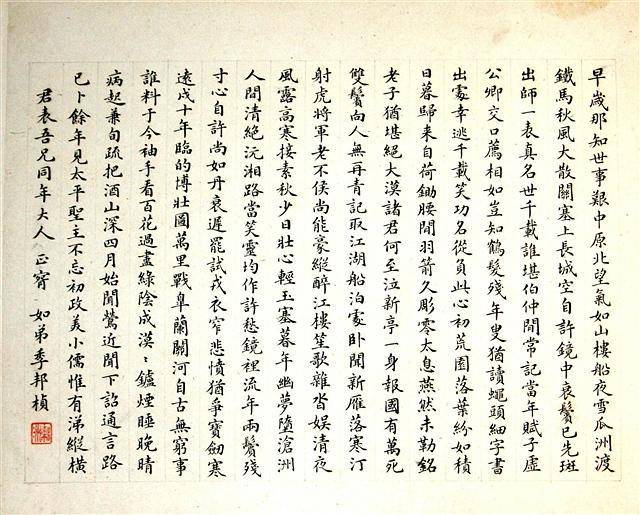 早歲那知世事艱中原北望氣如山樓船夜雪瓜洲渡
鐵馬秋風大散關塞上長城空自許鏡中衰鬢已先斑
出師一表真名世千載誰堪伯仲間常記當年賦子虛
公卿交口薦相如豈知鶴髮殘年叟猶讀蠅頭細字書
出處幸逃千載笑功名從負此心初荒園落葉紛如積
日暮歸來自荷鋤腰間羽箭久彫零太息燕然未勒銘
老子猶堪絕大漠諸君何至泣新亭一身報國有萬死
雙鬢向人無再青記取江湖船泊處臥聞新雁落寒汀
射虎將軍老不侯尚能豪縱醉江樓笙歌雜沓娛清夜
風露高寒接素秋少日壯心輕玉塞暮年幽夢墮滄洲
人間清絕沅湘路當笑靈均作許愁鏡裡流年兩鬢殘
寸心自許尚如丹衰遲罷試戎衣窄悲憤猶爭寶劒寒
遠戍十年臨的博壯圖萬里戰皐蘭關河自古無窮事
誰料于今袖手看百花過盡綠陰成漠〻鑪煙睡晚晴
病起兼旬疏把酒山深四月始聞鶯近聞下詔通言路
已卜餘年見太平聖主不忘初政美小儒惟有涕縱橫
君表吾兄同年大人 正 如弟季邦楨